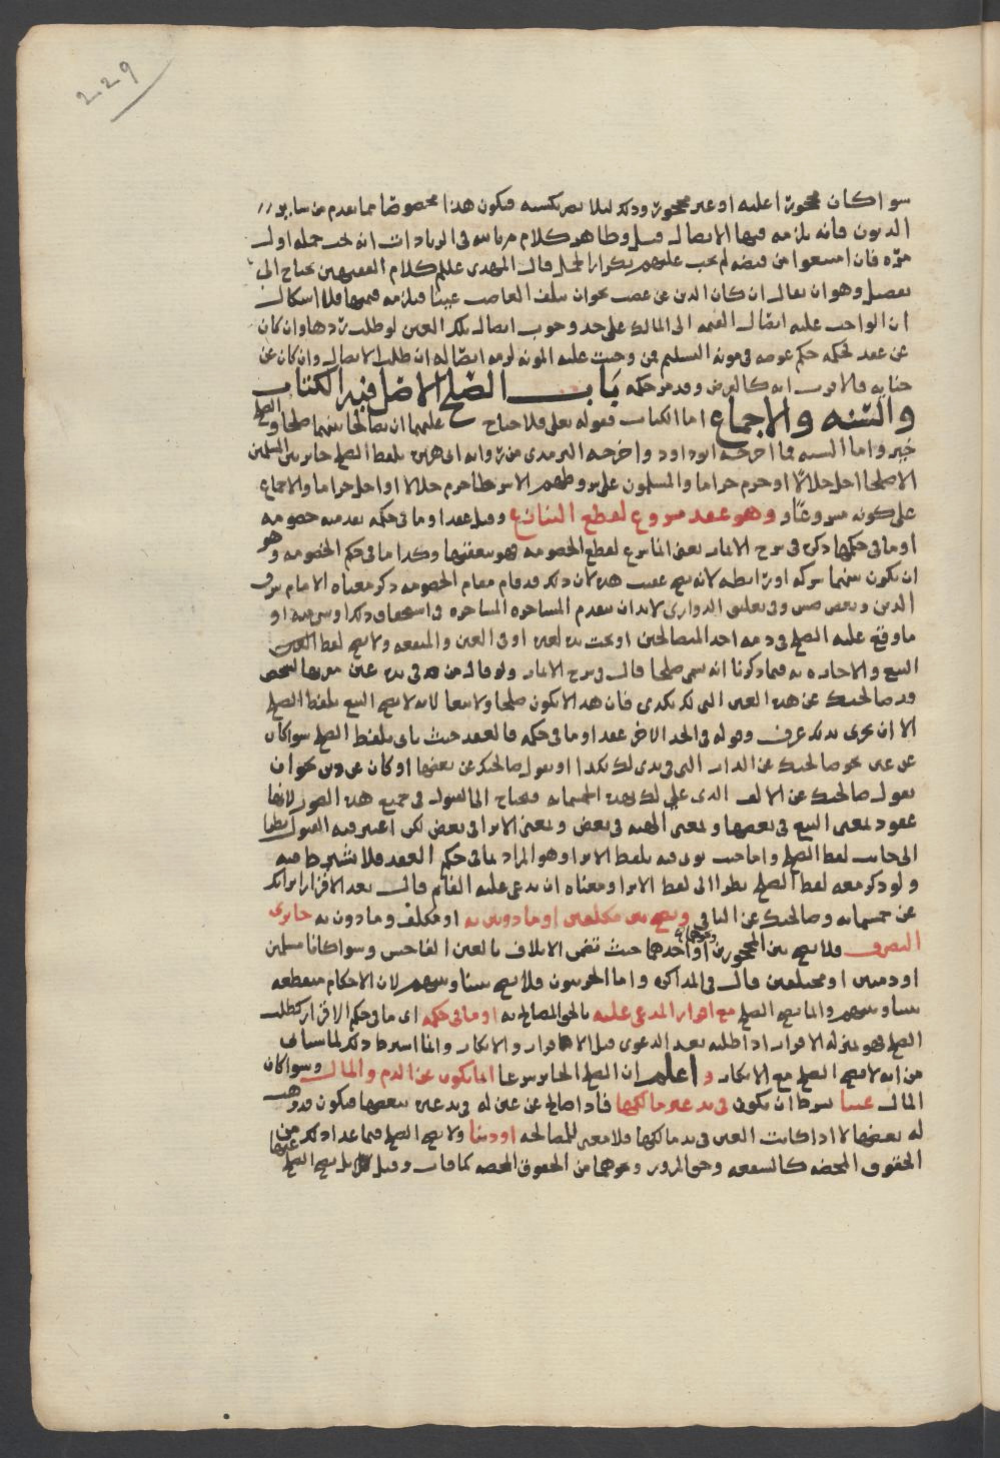 229
سوا كان محجورًا عليه او غير محجور وذلك ليلا يضر بكسبه فيكون هذا مخصوصًا مما تقدم من ساير
الديون فانه يلزمه فيها الايصال قيل وظاهر كلام م بالله في الزيادات انه يجب حمله اول
مرّه فان امتنعوا من قبضه لم يجب عليهم تكرار الحمل قال المهدي عليلم كلام الفقيهين يحتاج الى
تفصيل وهو ان يقال ان كان الدين عن غصب نحو ان يتلف الغاصب عينًا فيلزمه قيمتها فلا اشكال
ان الواجب عليه ايصال القيمه الى المالك على حد وجوب ايصال تلك العين لو طلب ردها وان كان
عن عقد فحكمه حكم عوضه في مونه التسليم فمن وجبت عليه المونه لزمه ايصاله ان طلب الايصال وان كان عن
جنايه فالاقرب انه كالقرض وقد مر حكمه باب الصّلح الاصل فيه الكتاب
والسّنه والاجماع اما الكتاب فقوله تعلى فلا جناح عليهما ان يصالحا بينهما صلحا والصلح
خير واما السنه فما اخرجه ابو داود واخرجه الترمذي من روايه ابي هريره بلفظ الصلح جايز بين المسلمين
الا صلحا احل حلالًا او حرم حراما والمسلمون على شروطهم الا شرطا حرم حلالا او احل حراما والاجماع
على كونه مشروعًا وهو عقد مشروع لقطع التنازع وقيل عقد او ما في حكمه بعد فيه خصومه
او ما في حكمها ذكره في شرح الاثمار يعني انما شرع لقطع الخصومه فهو يعقبها وكذا ما في حكم الخصومه وهو
ان يكون بينهما شركه او رابطه لانه يصح عقيب هذه لان ذلك قد قام مقام الخصومه ذكر معناه الامام شرف
الدين وبعض وفي تعليق الدواري لا بد ان يتقدم المشاجره المشاجره في استحقاق ذلك او سرقته او
ما وقع عليه الصلح في ذمه احد المتصالحين او تحت يده لغير او في العين والمنفعه ولا يصح لفظ
البيع والاجاره به فيما ذكرنا انه يسمى صلحا قال في شرح الاثمار ولو قال من هو في يده عين معرفها لشخص
قد صالحتك عن هذه العين التي لك بكذا فان هذا لا يكون صلحا ولا بيعا لانه لا يصح البيع بلفظ الصلح
الا ان يجري بذلك عرف وقوله في الحد الاخر عقد او ما في حكمه فالعقد حيث ياتي بلفظ الصلح سوا كان
عن عين نحو صالحتك عن الدار التي في يدي لك بكذا او يقول صالحتك عن بعضها او كان عن دين نحو ان
يقول صالحتك عن الالف الذي علي لك بهذه الخمسمايه فيحتاج الى القبول في جميع هذه الصور لانها
عقود لمعنى البيع في بعضها ولمعنى الهبه في بعض ومعنى الابرا في بعض لكن اعتبر فيه القبول نظرا
الى جانب لفظ الصلح واما حيث يوتى فيه بلفظ الابرا وهو المراد بما في حكم العقد فلا يشترط فيه
ولو ذكر معه لفظ الصلح نظرا الى لفظ الابرا ومعناه ان يدعى عليه الفايم قال بعد الاقرار ابراتك
عن خمسمايه وصالحتك عن الباقي ويصح بين مكلفين او ماذونين به او مكلف وماذون به جايزي
التصرف فلا يصح بين المحجورين او احدهما حيث تضمن الاتلاف بالغبن الفاحش وسوا كانا مسلمين
او ذميين او مختلفين قال في المذاكره واما الحربيون فلا يصح بيننا وبينهم لان الاحكام منقطعه
بيننا وبينهم وانما يصح الصلح مع اقرار المدعى عليه بالحق المصالح به او ما في حكمه اي ما في حكم الاقرار كطلب
الصلح فهو بمنزله الاقرار اذا طلبه بعد الدعوى قبل الاقرار والانكار وانما اشترط ذلك لما سياتي
من انه لا يصح الصلح مع الانكار واعلم ان الصلح الجايز شرعا انما يكون عن الدم والمال وسوا كان
المال عينا شرط ان يكون في يد غير مالكها فاذا صالح عن عين له في يد غيره ببعضها فيكون قد وهب
له بعضها لا اذا كانت العين في يد مالكها فلا معنى للمصالحه او دينا ولا يصح الصلح فيما عدا ذلك من
الحقوق المحضه كالشفعه وحق المرور وغيرهما من الحقوق المحضه كما قاب وقيل بل يصح الصلح عنها